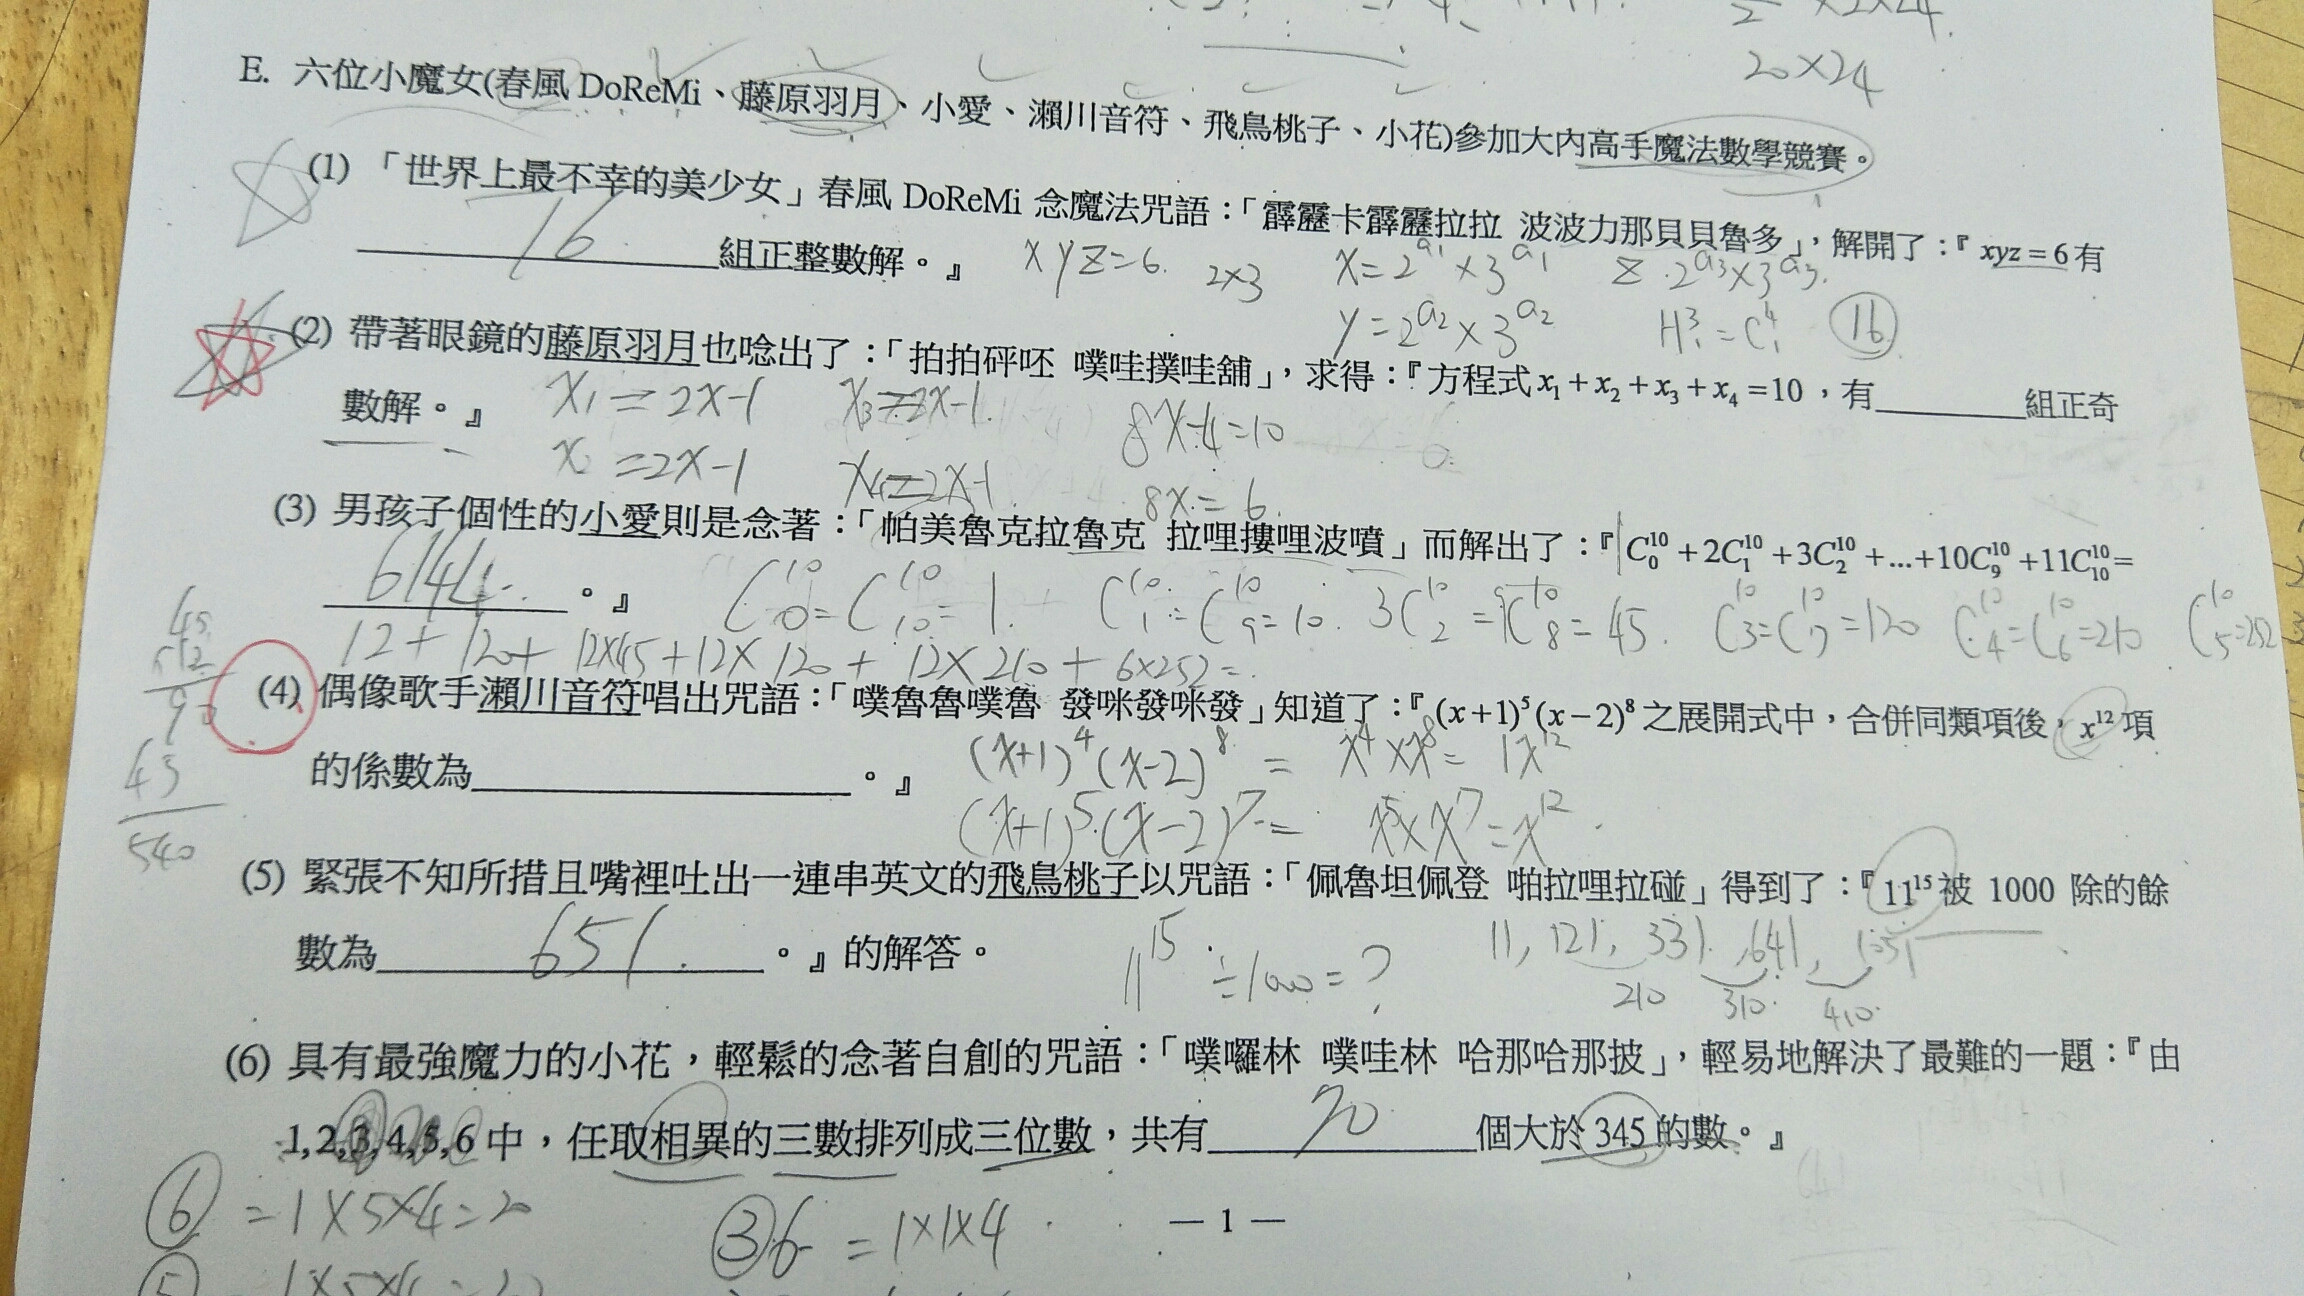 20×24
E. 六位小魔女(春風 DoReMi、藤原羽月、小愛、瀨川音符、飛鳥桃子、小花)參加大內高手魔法數學競賽。
(1) 「世界上最不幸的美少女」春風 DoReMi 念魔法咒語：「霹靂卡霹靂拉拉 波波力那貝貝魯多」，解開了：『xyz = 6有
16 組正整數解。』 xyz=6. 2×3 x=2^a₁×3^a₁ z 2^a₃×3^a₃.
y=2^a₂×3^a₂ H³₁=C⁴₁ 16
(2) 帶著眼鏡的藤原羽月也唸出了：「拍拍砰呸 噗哇撲哇舖」，求得：『方程式x₁+x₂+x₃+x₄=10，有________組正奇
數解。』 x₁=2x-1 x₃=2x-1. 8x-4=10
x =2x-1 x₄=2x-1 8x=6.
(3) 男孩子個性的小愛則是念著：「帕美魯克拉魯克 拉哩摟哩波噴」而解出了：『C₀¹⁰+2C₁¹⁰+3C₂¹⁰+...+10C₉¹⁰+11C₁₀¹⁰=
6144 。』 C₀¹⁰=C₁₀¹⁰=1. C₁¹⁰=C₉¹⁰=10. 3C₂¹⁰=9C₈¹⁰=45. C₃¹⁰=C₇¹⁰=120 C₄¹⁰=C₆¹⁰=210 C₅¹⁰=252
12+120+12×45+12×120+12×210+6×252=
45
12
90
45
540
(4) 偶像歌手瀨川音符唱出咒語：「噗魯魯噗魯 發咪發咪發」知道了：『(x+1)⁵(x−2)⁸之展開式中，合併同類項後，x¹²項
的係數為________。』 (x+1)⁴(x-2)⁸ = x⁴×x⁸= 1x¹²
(x+1)⁵(x-2)⁷= x⁵×x⁷=x¹².
(5) 緊張不知所措且嘴裡吐出一連串英文的飛鳥桃子以咒語：「佩魯坦佩登 啪拉哩拉碰」得到了：『11¹⁵被 1000 除的餘
數為 651. 。』的解答。 11¹⁵÷1000=? 11, 121, 331, 641, 1051
210 310 410
(6) 具有最強魔力的小花，輕鬆的念著自創的咒語：「噗囉林 噗哇林 哈那哈那披」，輕易地解決了最難的一題：『由
1,2,3,4,5,6中，任取相異的三數排列成三位數，共有 70 個大於 345 的數。』
⑥ =1×5×4=20 ③6 =1×1×4
— 1 —